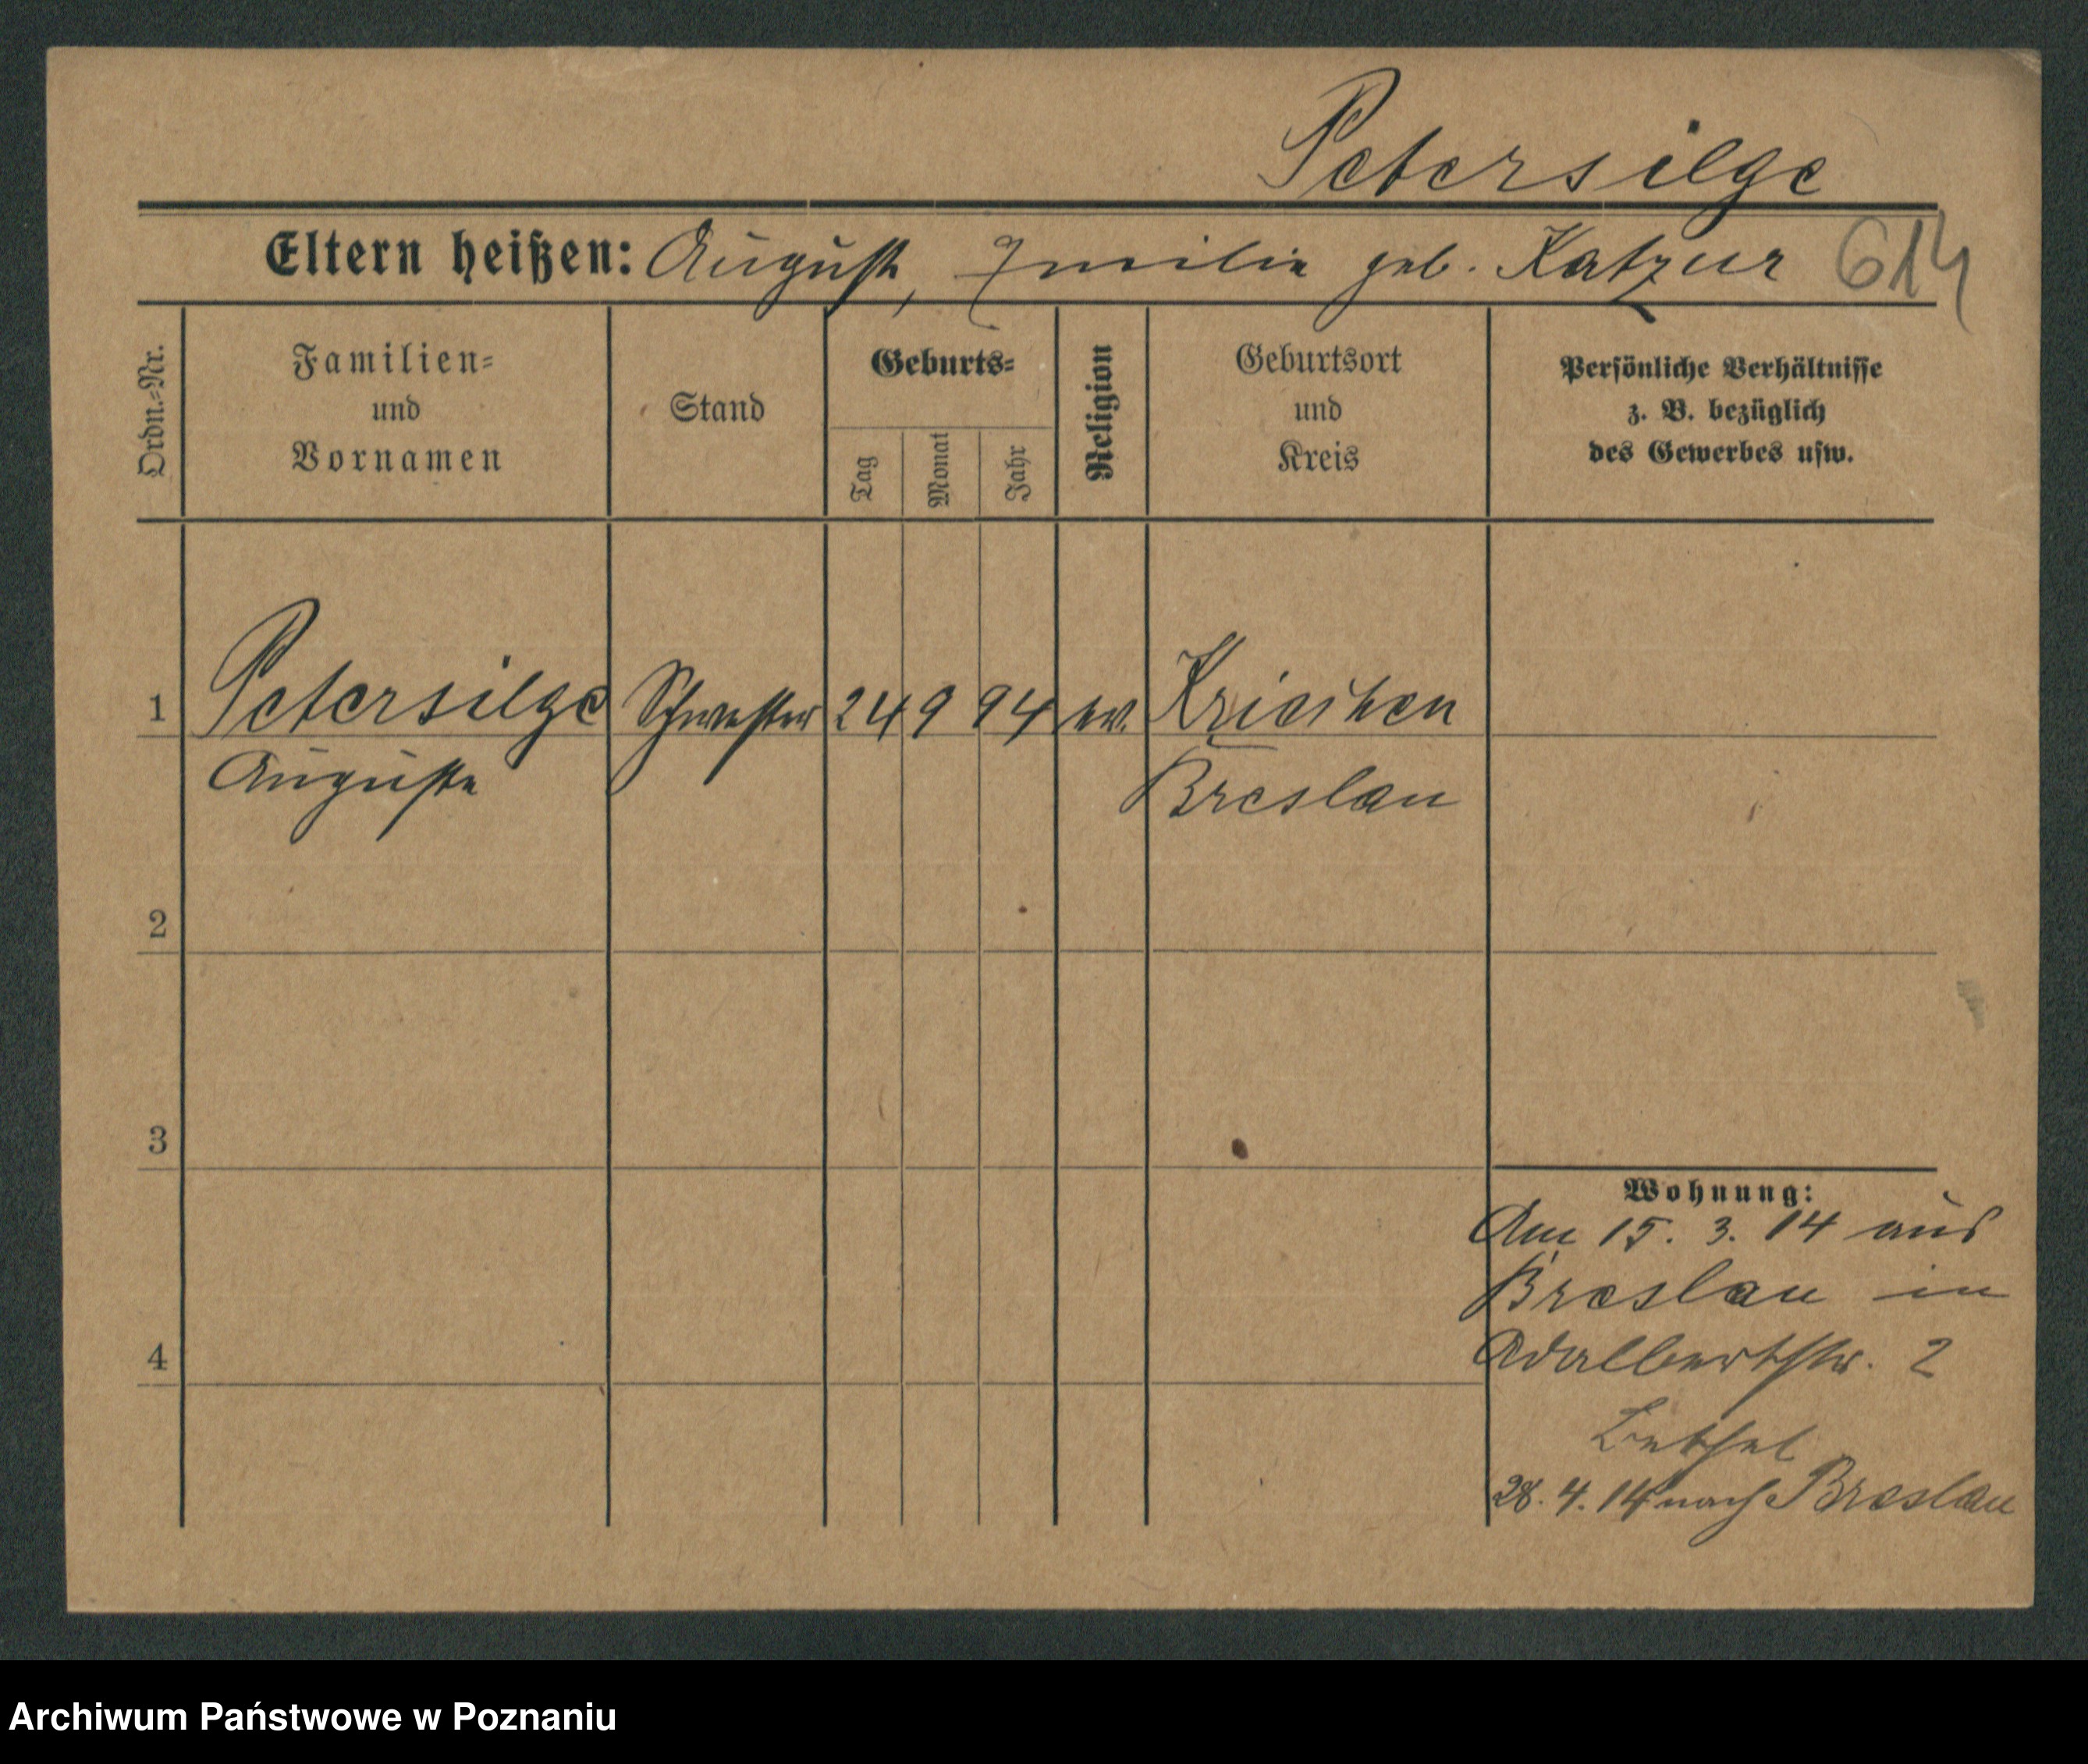 Petersilge
Eltern heißen: August, Emilie geb. Katzur 614
Ordn.-Nr.
Familien-
und
Vornamen
Stand
Geburts-
Tag
Monat
Jahr
Religion
Geburtsort
und
Kreis
Persönliche Verhältnisse
z. B. bezüglich
des Gewerbes usw.
1 Petersilge Schwester 24 9 94 ev.
Auguste
Breslau
2
3
4
Wohnung:
Am 15. 3. 14 aus
Breslau in
Adalbertstr. 2
Bethel
28. 4. 14 nach Breslau
Archiwum Państwowe w Poznaniu